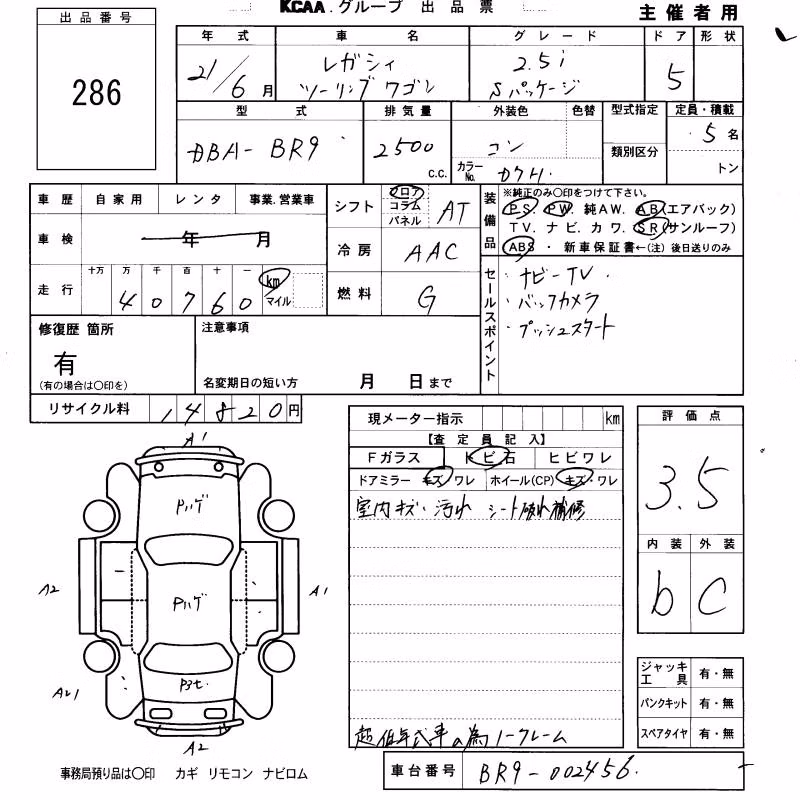 KCAA.グループ 出品票
主催者用
出品番号
286
年式 車名 グレード ドア 形状
21/6月 レガシィ ツーリングワゴン 2.5i Sパッケージ 5
型式 排気量 外装色 色替 型式指定 定員・積載
DBA-BR9 2500 C.C. コン 類別区分 5名
カラーNo. D7H. トン
車歴 自家用 レンタ 事業.営業車
車検 年 月
走行 十万 万 千 百 十 一 km マイル
40760
シフト フロア コラム パネル AT
冷房 AAC
燃料 G
装備品 ※純正のみ〇印をつけて下さい。
PS. PW. 純AW. AB(エアバック)
TV. ナビ. カワ. SR(サンルーフ)
ABS ・ 新車保証書←(注) 後日送りのみ
セールスポイント
・ナビーTV
・バックカメラ
・プッシュスタート
修復歴 箇所
有
(有の場合は〇印を)
注意事項
名変期日の短い方 月 日まで
リサイクル料 14820円
現メーター指示 km
【査定員記入】
Fガラス トビ石 ヒビワレ
ドアミラー キズ・ワレ ホイール(CP) キズ・ワレ
室内キズ・汚れ シート破れ補修
超低年式車の為ノークレーム
評価点
3.5
内装 外装
b C
ジャッキ工具 有・無
パンクキット 有・無
スペアタイヤ 有・無
A1
Pハゲ
A2 Pハゲ A1
A2
事務局預り品は〇印 カギ リモコン ナビロム
車台番号 BR9-002456